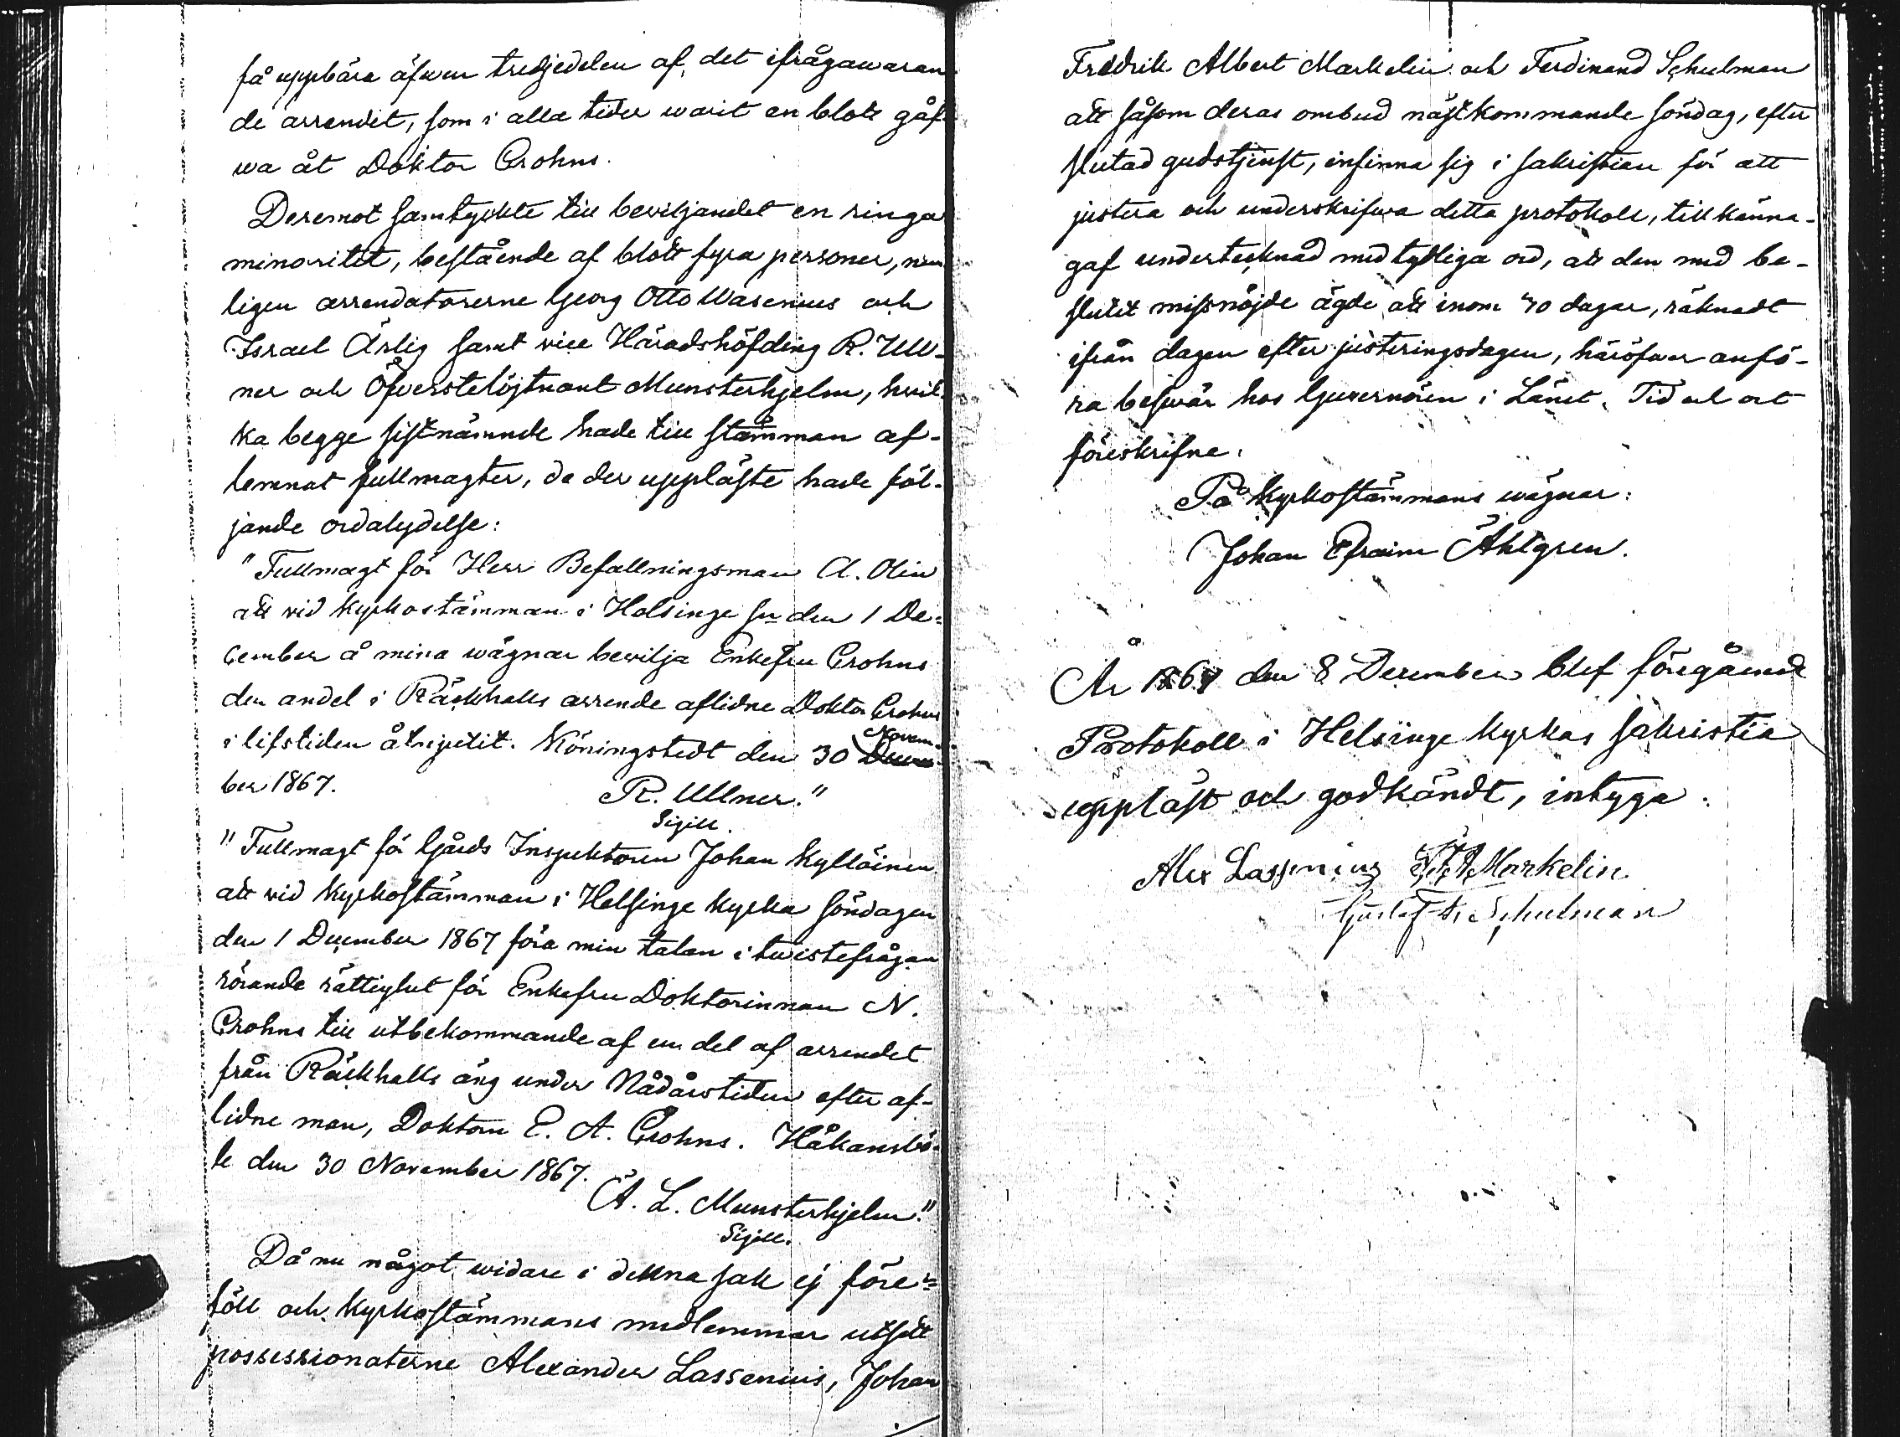 få uppbära äfwen tredjedelen af det ifrågawaran
de arrendet, som i alla tider warit en blott gåf
wa åt Doktor Crohns.
Deremot samtyckte till beviljandet en ringa
minoritet, bestående af blott fyra personer, nem
ligen arrendatorerne Georg Otto Wasenius och
Israel Ärlig samt vice Häradshöfding R. Ull-
ner och Öfverstelöjtnant Munsterhjelm, hvil-
ka begge sistnämnde hade till stämman af-
lemnat fullmagter, de der uppläste hade föl-
jande ordalydelse:
"Fullmagt för Herr Befallningsman A. Olin
att vid kyrkostämman i Helsinge sn den 1 De-
cember å mina wägnar bevilja Enkefru Crohns
den andel i Räckhalls arrende aflidne Doktor Crohns
i lifstiden åtnjutit. Köningstedt den 30 Novem-
ber 1867. R. Ullner."
Sigill.
"Fullmagt för Gårds Inspektoren Johan Kylläinen
att vid kyrkostämman i Helsinge kyrka söndagen
den 1 December 1867 föra min talan i twistefrågan
rörande rättighet för Enkefru Doktorinnan N.
Crohns till utbekommande af en del af arrendet
från Räckhalls äng under Nådårstiden efter af-
lidne man, Doktorn E. A. Crohns. Håkansbö-
le den 30 November 1867.
A. L. Munsterhjelm."
Sigill.
Då nu något widare i denna sak ej före-
föll och kyrkostämmans medlemmar utsett
possessionaterne Alexander Lassenius, Johan
Fredrik Albert Markelin och Ferdinand Schulman
att såsom deras ombud nästkommande söndag, efter
slutad gudstjenst, infinna sig i sakristian för att
justera och underskrifwa detta protokoll, tillkänna-
gaf undertecknad med tydliga ord, att den med be-
slutet missnöjde ägde att inom 30 dagar, räknadt
ifrån dagen efter justeringsdagen, häröfwer anfö-
ra beswär hos Guvernören i Länet. Tid och ort
föreskrifne.
På kyrkostämmans wägnar:
Johan Efraim Åhlgren.
År 1867 den 8 December blef föregående
Protokoll i Helsinge kyrkas sakristia
uppläst och godkändt, intyga:
Alex Lassenius F. A. Markelin
Gustaf F. Schulman